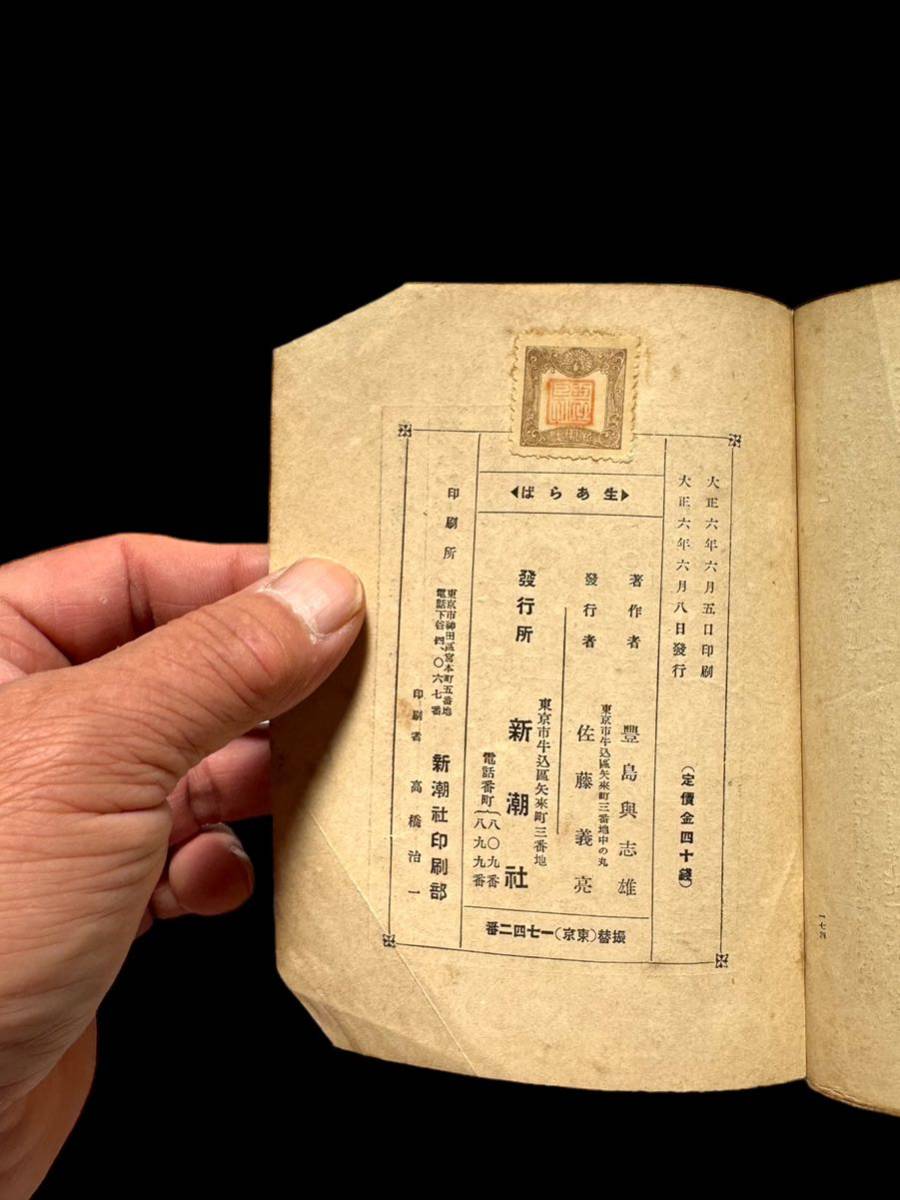 大正六年六月五日印刷
大正六年六月八日發行
(定價金四十錢)
生あらば
著作者 豐島與志雄
東京市牛込區矢來町三番地中の丸
發行者 佐藤義亮
東京市牛込區矢來町三番地
發行所 新潮社
電話番町{八〇九番 八九九番
振替(東京)一七四二番
東京市神田區宮本町五番地
印刷所 新潮社印刷部
電話下谷四、〇六七番
印刷者 高橋治一